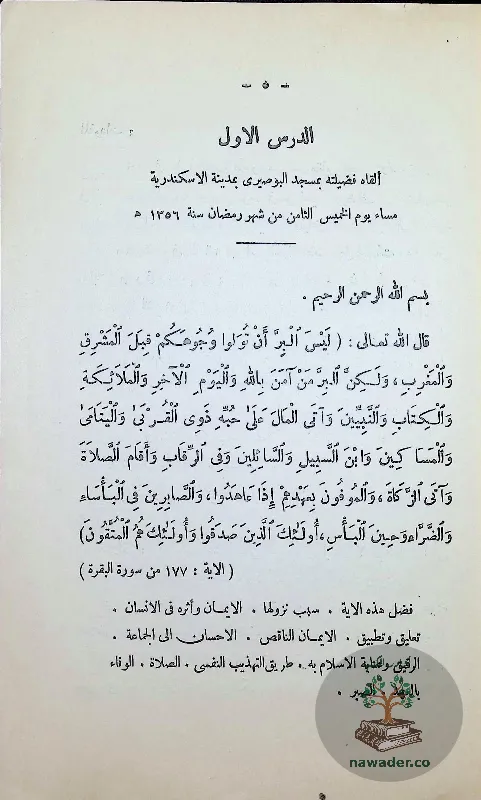 — ٥ —
الدرس الاول
ألقاه فضيلته بمسجد البوصيرى بمدينة الاسكندرية
مساء يوم الخميس الثامن من شهر رمضان سنة ١٣٥٦ ه
بسم الله الرحمن الرحيم .
قال الله تعالى : ( لَيْسَ الْبِرَّ أَنْ تُوَلُّوا وُجُوهَكُمْ قِبَلَ الْمَشْرِقِ
وَالْمَغْرِبِ ، وَلَكِنَّ الْبِرَّ مَنْ آمَنَ بِاللهِ وَالْيَوْمِ الْآخِرِ وَالْمَلَائِكَةِ
وَالْكِتَابِ وَالنَّبِيِّينَ وَآتَى الْمَالَ عَلَى حُبِّهِ ذَوِى الْقُرْبَى وَالْيَتَامَى
وَالْمَسَاكِينَ وَابْنَ السَّبِيلِ وَالسَّائِلِينَ وَفِى الرِّقَابِ وَأَقَامَ الصَّلَاةَ
وَآتَى الزَّكَاةَ ، وَالْمُوفُونَ بِعَهْدِهِمْ إِذَا عَاهَدُوا ، وَالصَّابِرِينَ فِى الْبَأْسَاءِ
وَالضَّرَّاءِ وَحِينَ الْبَأْسِ ، أُولَئِكَ الَّذِينَ صَدَقُوا وَأُولَئِكَ هُمُ الْمُتَّقُونَ )
( الاية : ١٧٧ من سورة البقرة )
فضل هذه الاية . سبب نزولها . الايمان وأثره فى الانسان .
تعليق وتطبيق . الايمان الناقص . الاحسان الى الجماعة .
الرقيق وعناية الاسلام به . طريق التهذيب النفسى . الصلاة . الوفاء
بالعهد . الصبر .
nawader.co